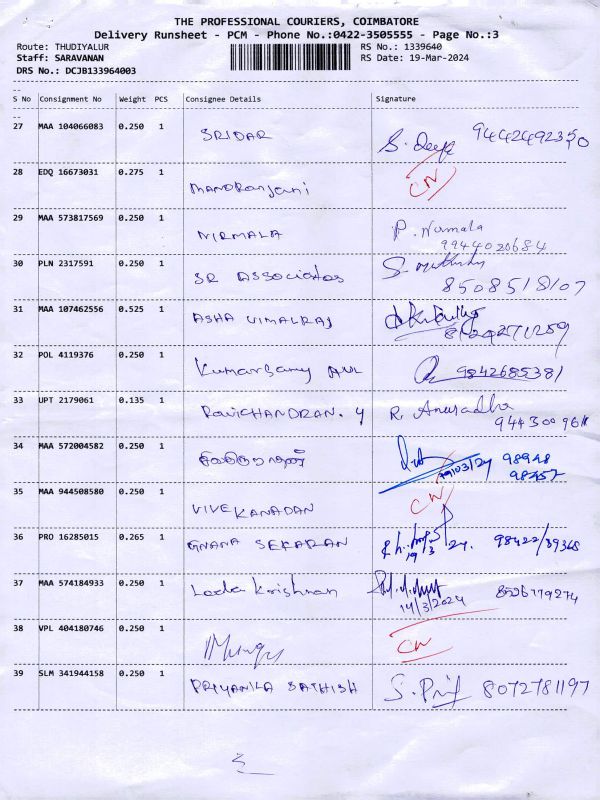 THE PROFESSIONAL COURIERS, COIMBATORE
Delivery Runsheet - PCM - Phone No.:0422-3505555 - Page No.:3
Route: THUDIYALUR RS No.: 1339640
Staff: SARAVANAN RS Date: 19-Mar-2024
DRS No.: DCJB133964003
S No Consignment No Weight PCS Consignee Details Signature
27 MAA 104066083 0.250 1 SRIDAR S. Deepe
28 EDQ 16673031 0.275 1 MANORanjani CN
29 MAA 573817569 0.250 1 NIRMALA P. Nirmala
9944020684
30 PLN 2317591 0.250 1 SR Associates
8508518107
31 MAA 107462556 0.525 1 ASHA VIMALRAJ
32 POL 4119376 0.250 1 Kumarsamy AVL 9842685381
33 UPT 2179061 0.135 1 RaviCHANDRAN. Y R. Anuradha
34 MAA 572004582 0.250 1 19/03/24 98948
98457
35 MAA 944508580 0.250 1 VIVEKANADAN CN
36 PRO 16285015 0.265 1 GNANA SEKARAN 98422/39368
19/3/24.
37 MAA 574184933 0.250 1 Lada Krishnan 8526779274
19/3/2024
38 VPL 404180746 0.250 1 CN
39 SLM 341944158 0.250 1 PRIYANKA SATHISH S. Prif 8072781197
3